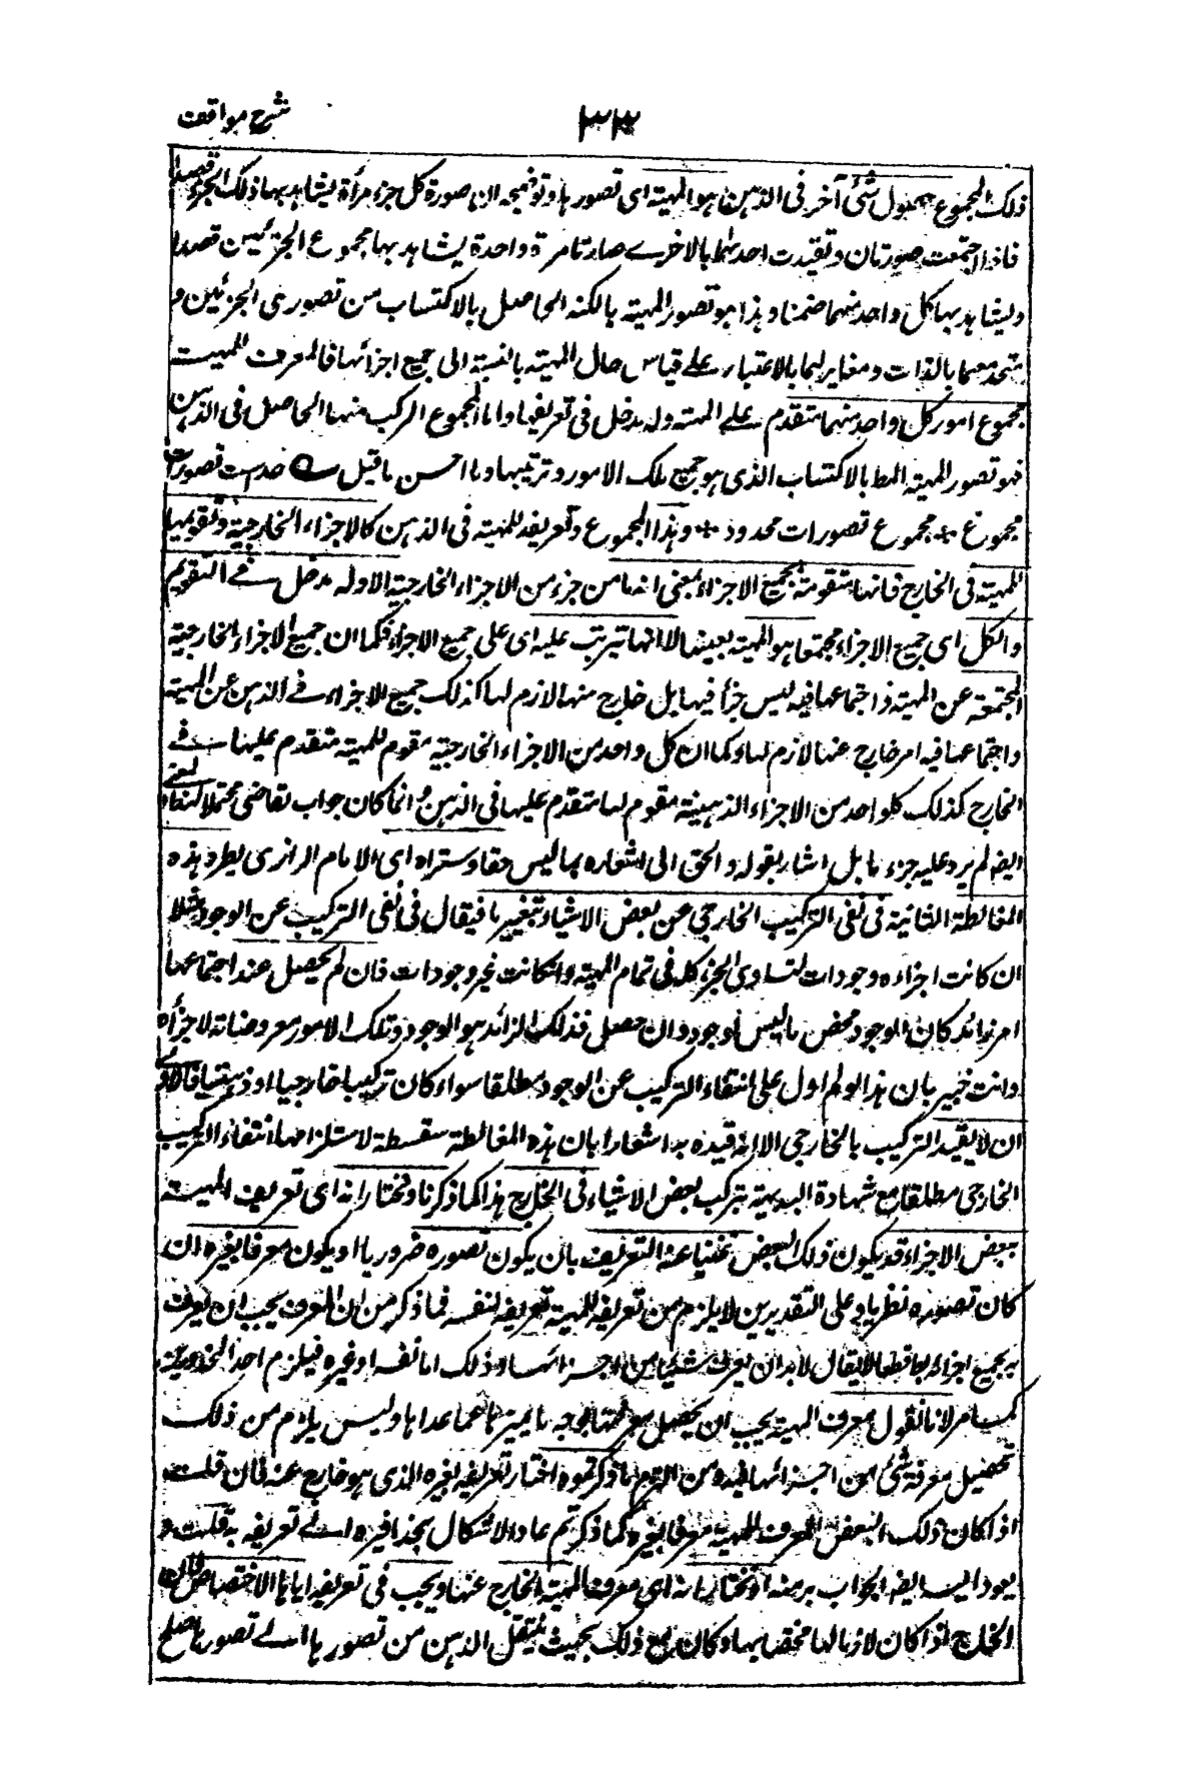 شرح مواقف
٣٣
ذلك المجموع حصول شئ آخر فى الذهن هو المهية اى تصورها وتوضيحه ان صورة كل جزء مرأة يشاهد بها ذلك الجزء قصدا
فاذا اجتمعت صورتان وتقيدت احدهما بالاخرى صارتا مرءة واحدة يشاهد بها مجموع الجزئيين قصدا
ويشاهد بها كل واحد منهما ضمنا وهذا هو تصور المهية بالكنه الحاصل بالاكتساب من تصورى الجزئين و
متحد معهما بالذات ومغاير لهما بالاعتبار على قياس حال المهية بالنسبة الى جميع اجزائها فالمعرف للمهية
مجموع امور كل واحد منهما متقدم على المهية وله مدخل فى تعريفها واما المجموع المركب منها الحاصل فى الذهن
فهو تصور المهية المط بالاكتساب الذى هو جمع تلك الامور وترتيبها وما احسن ما قيل تصورات
مجموع + مجموع تصورات محدود + وهذا المجموع وتعريفه للمهية فى الذهن كالاجزاء الخارجية وتقويمها
للمهية فى الخارج فانها متقومة بجميع الاجزاء بمعنى انه ما من جزء من الاجزاء الخارجية الا وله مدخل فى التقويم
والكل اى جميع الاجزاء مجتمعا هو المهية بعينها لا انها تترتب عليه اى على جميع الاجزاء فكما ان جميع الاجزاء الخارجية
المجتمعة عين المهية واجتماعها فيه ليس جزأ فيها بل خارج منها لازم لها كذلك جميع الاجزاء فى الذهن عين المهية
واجتماعها فيه امر خارج عنها لازم لها وكما ان كل واحد من الاجزاء الخارجية مقوم للمهية متقدم عليها فى
الخارج كذلك كل واحد من الاجزاء الذهنية مقوم لها متقدم عليها فى الذهن وانما كان جواب القاضى محتملا لمعنى
ايضه لم يرد عليه جزء ما بل اشار بقوله والحق الى اشعاره بما ليس حقا وستراه اى الامام الرازى يطرد هذه
المغالطة الثانية فى نفى التركيب الخارجى عن بعض الاشياء بتغيير ما فيقال فى نفى التركيب عن الوجود مثلا
ان كانت اجزاءه وجودات لتساوى الجزء كله فى تمام المهية وان كانت غير وجودات فان لم يحصل عند اجتماعها
امر زائد كان الوجود محض ما ليس بوجود وان حصل فذلك الزائد هو الوجود وتلك الامور معروضاته لا اجزأه
وانت خبير بان هذا لو تم لدل على انتفاء التركيب عن الوجود مطلقا سواء كان تركيبا خارجيا او ذهنيا فالاولى
ان لا يقيد التركيب بالخارجى الا انه قيده به اشعارا بان هذه المغالطة سفسطة لاستلزامها انتفاء التركيب
الخارجى مطلقا مع شهادة البديهة بتركب بعض الاشياء فى الخارج هذا كما ذكرنا ونختار انه اى تعريف المهية
ببعض الاجزاء قد يكون ذلك البعض غنيا عن التعريف بان يكون تصوره ضروريا او يكون معرفا بغيره ان
كان تصوره نظريا وعلى التقديرين لا يلزم من تعريفه للمهية تعريفه لنفسه فما ذكر من ان المعرف يجب ان يعرف
جميع اجزاءها قطعا لا يقال لا بد ان يعرف شيئا من اجزائها وذلك اما نفسه او غيره فيلزم احد المحذورين
كما مر لانا نقول معرف المهية يجب ان يحصل معرفتها بوجه ما يميزها عما عداها وليس يلزم من ذلك
تحصيل معرفة شئ من اجزائها فيه ومن التزم ما ذكرتموه اختار تعريفه لغيره الذى هو خارج عنه فان قلت
اذا كان ذلك البعض المعرف للمهية معرفا بغيره كما ذكرتم عاد الاشكال بحذافيره اى فى تعريفه به قلت و
يعود اليه ايضه الجواب برمته او نختار انه اى معرف المهية الخارج عنها ويجب فى تعريفه اياها الاختصاص فان
الخارج اذا كان لازما لها مختصا بها وكان مع ذلك بحيث ينتقل الذهن من تصورها الى تصورها صلح